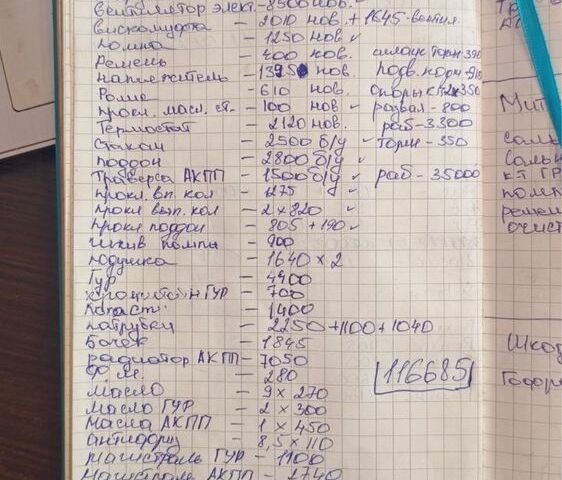 Вентилятор элект. - 8500 нов. ✓
Вискомуфта - 2010 нов. + 1645 - вентил
помпа - 1250 нов ✓
Ремень - 400 нов.
натяжитель - 1395 нов. подв. торм - 910
Ролик - 610 нов. опоры 2x350
прокл. масл. ст. - 100 нов ✓ развал - 800
Термостат - 2120 нов. раб - 3300
Стакан - 2500 б/у ✓ торм - 350
поддон - 2800 б/у ✓
Траверса АКПП - 1500 б/у ✓ раб - 35000
прокл. вп. кол - 1275 ✓
прокл вып. кол - 2 x 820 ✓
прокл поддон - 805 + 190 ✓
шкив помпы - 900
подушка - 1640 x 2
Гур - 4900
ГУР - 700
лопасть - 1400
патрубки - 2250 + 1100 + 1040
Бачок - 1845
радиатор АКПП - 7050
ф м. - 280
116685
масло - 9 x 270
Масло ГУР - 2 x 300
Масла АКПП - 1 x 450
антифриз - 8,5 x 110
магистраль ГУР - 1100
Магистраль АКПП - 2740
Мит
Саль
кт ГР
помп
ремен
очист
Шкод